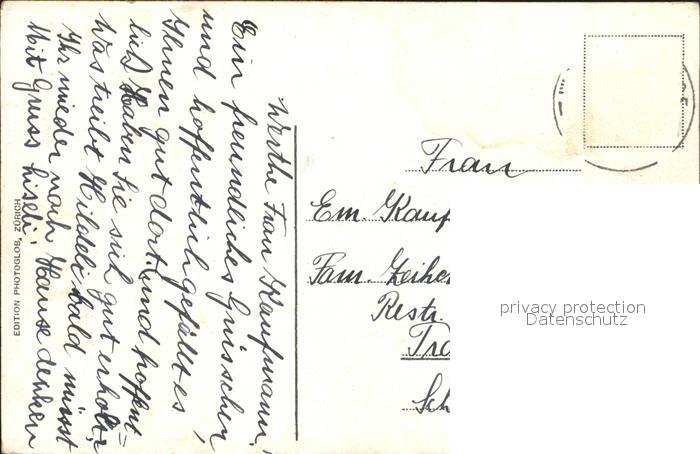 Werthe Frau Kaufmann!
Ein freundliches Grüsschen
und hoffentlich gefällt es
Ihnen gut dort, und hoffent=
lich haben Sie sich gut erholt,
was treibt Hildeli bald müsst
Ihr wieder nach Hause denken
Mit Gruss Liseli!
EDITION PHOTOGLOB, ZÜRICH
Frau
Em. Kauf
Fam. Zeihe
Restr.
Tro
Sch
privacy protection
Datenschutz